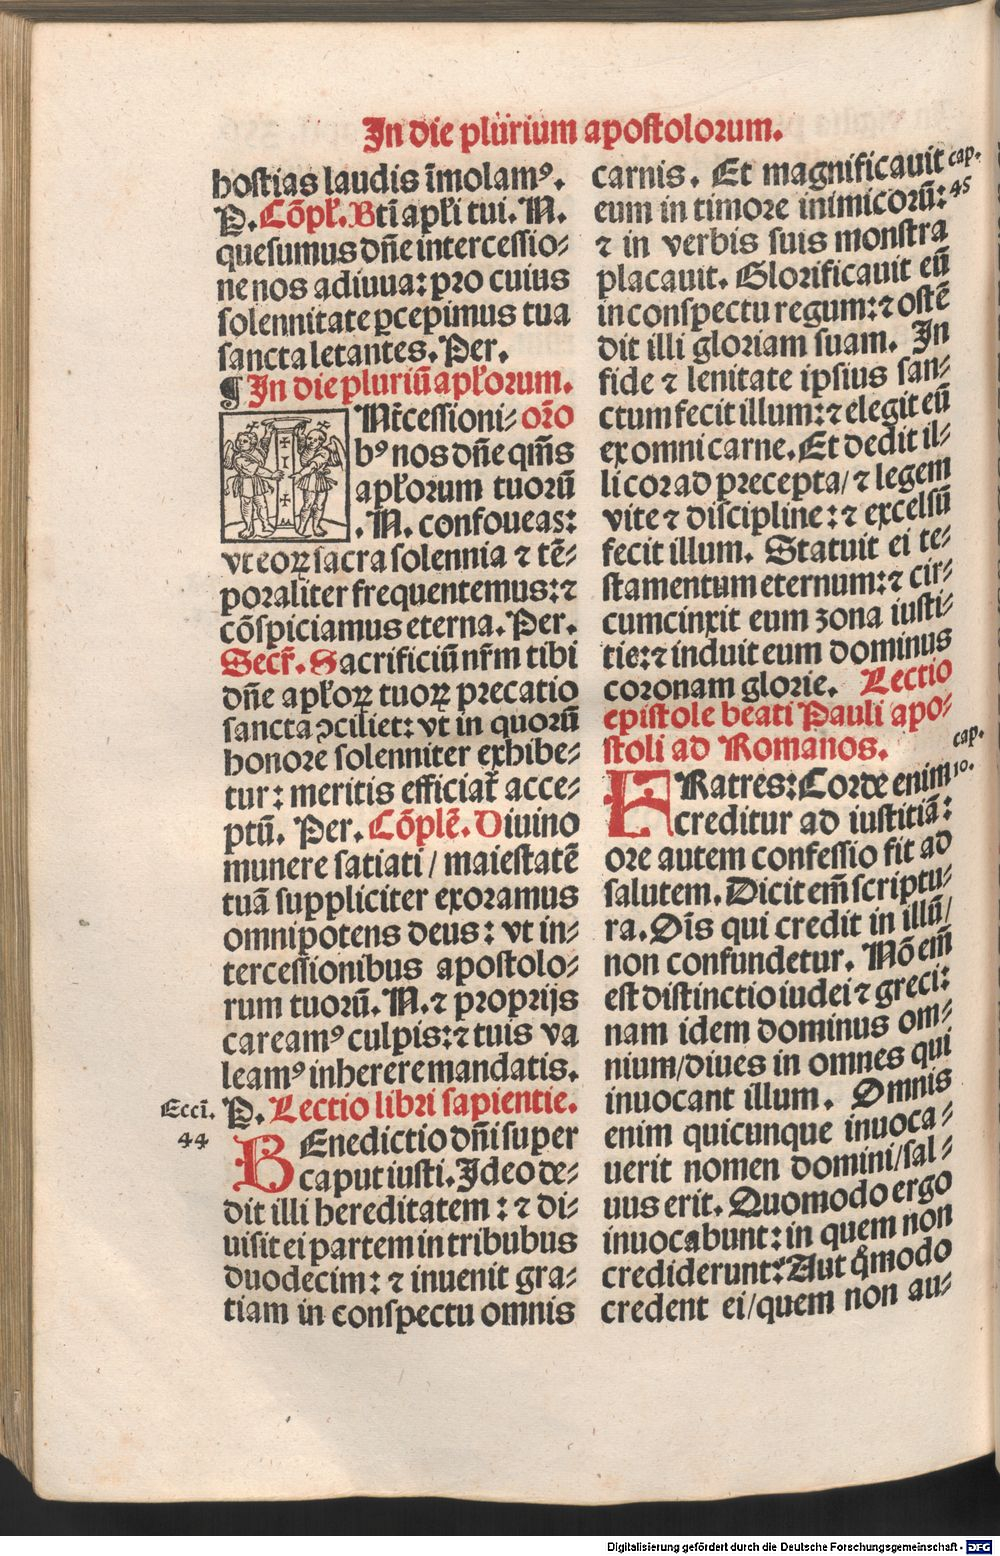 In die plurium apostolorum.
hostias laudis īmolamꝰ.
P. Cōpƚ. Btī apƚi tui. N.
quesumus dn̄e intercessio-
ne nos adiuua: pro cuius
solennitate ꝑcepimus tua
sancta letantes. Per.
¶ In die pluriū apƚorum.
Nt̄cessioni- or̄o
bꝰ nos dn̄e qm̄s
apƚorum tuorū
.N. confoueas:
vt eoꝝ sacra solennia ⁊ tē-
poraliter frequentemus: ⁊
cōspiciamus eterna. Per.
Secr̄. Sacrificiū nr̄m tibi
dn̄e apƚoꝝ tuoꝝ precatio
sancta ↄciliet: vt in quorū
honore solenniter exhibe-
tur: meritis efficiat̄ acce-
ptū. Per. Cōplē. Diuino
munere satiati / maiestatē
tuā suppliciter exoramus
omnipotens deus: vt in-
tercessionibus apostolo-
rum tuorū. N. ⁊ proprijs
careamꝰ culpis: ⁊ tuis va
leamꝰ inherere mandatis.
Eccī. P. Lectio libri sapientie.
44 BEnedictio dn̄i super
caput iusti. Ideo de-
dit illi hereditatem: ⁊ di-
uisit ei partem in tribubus
duodecim: ⁊ inuenit gra-
tiam in conspectu omnis
carnis. Et magnificauit cap.
eum in timore inimicorū: 45
⁊ in verbis suis monstra
placauit. Glorificauit eū
in conspectu regum: ⁊ ostē
dit illi gloriam suam. In
fide ⁊ lenitate ipsius san-
ctum fecit illum: ⁊ elegit eū
ex omni carne. Et dedit il-
li cor ad precepta/ ⁊ legem
vite ⁊ discipline: ⁊ excelsū
fecit illum. Statuit ei te-
stamentum eternum: ⁊ cir-
cumcinxit eum zona iusti-
tie: ⁊ induit eum dominus
coronam glorie. Lectio
epistole beati Pauli apo-
stoli ad Romanos. cap.
FRatres: Corde enim 10.
creditur ad iustitiā:
ore autem confessio fit ad
salutem. Dicit em̄ scriptu-
ra. Oīs qui credit in illū/
non confundetur. Nō em̄
est distinctio iudei ⁊ greci:
nam idem dominus om-
nium/diues in omnes qui
inuocant illum. Omnis
enim quicunque inuoca-
uerit nomen domini/sal-
uus erit. Quomodo ergo
inuocabunt: in quem non
crediderunt: Aut qͦmodo
credent ei/quem non au-
Digitalisierung gefördert durch die Deutsche Forschungsgemeinschaft - DFG